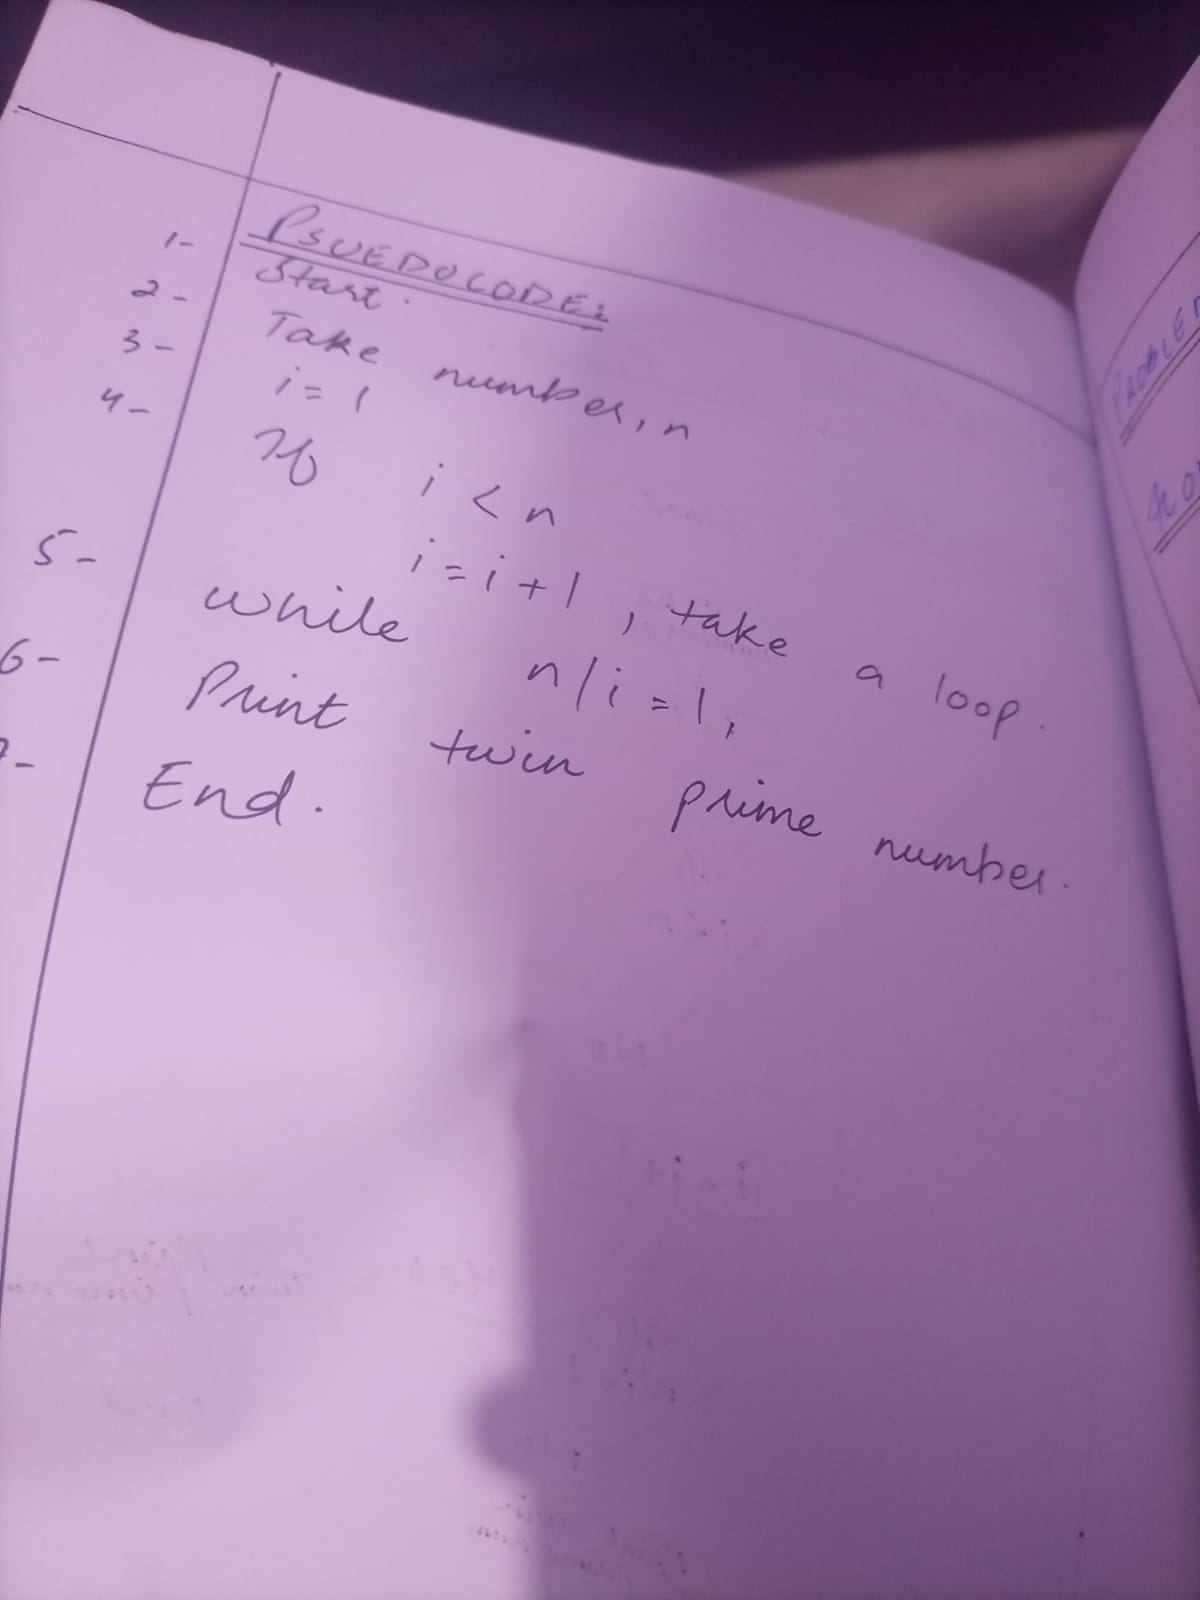 PSUEDOCODE:
1- Start.
2- Take number, n
3- i = 1
4- If i < n
i = i + 1, take a loop.
5- while n/i = 1,
6- Print twin prime number.
7- End.